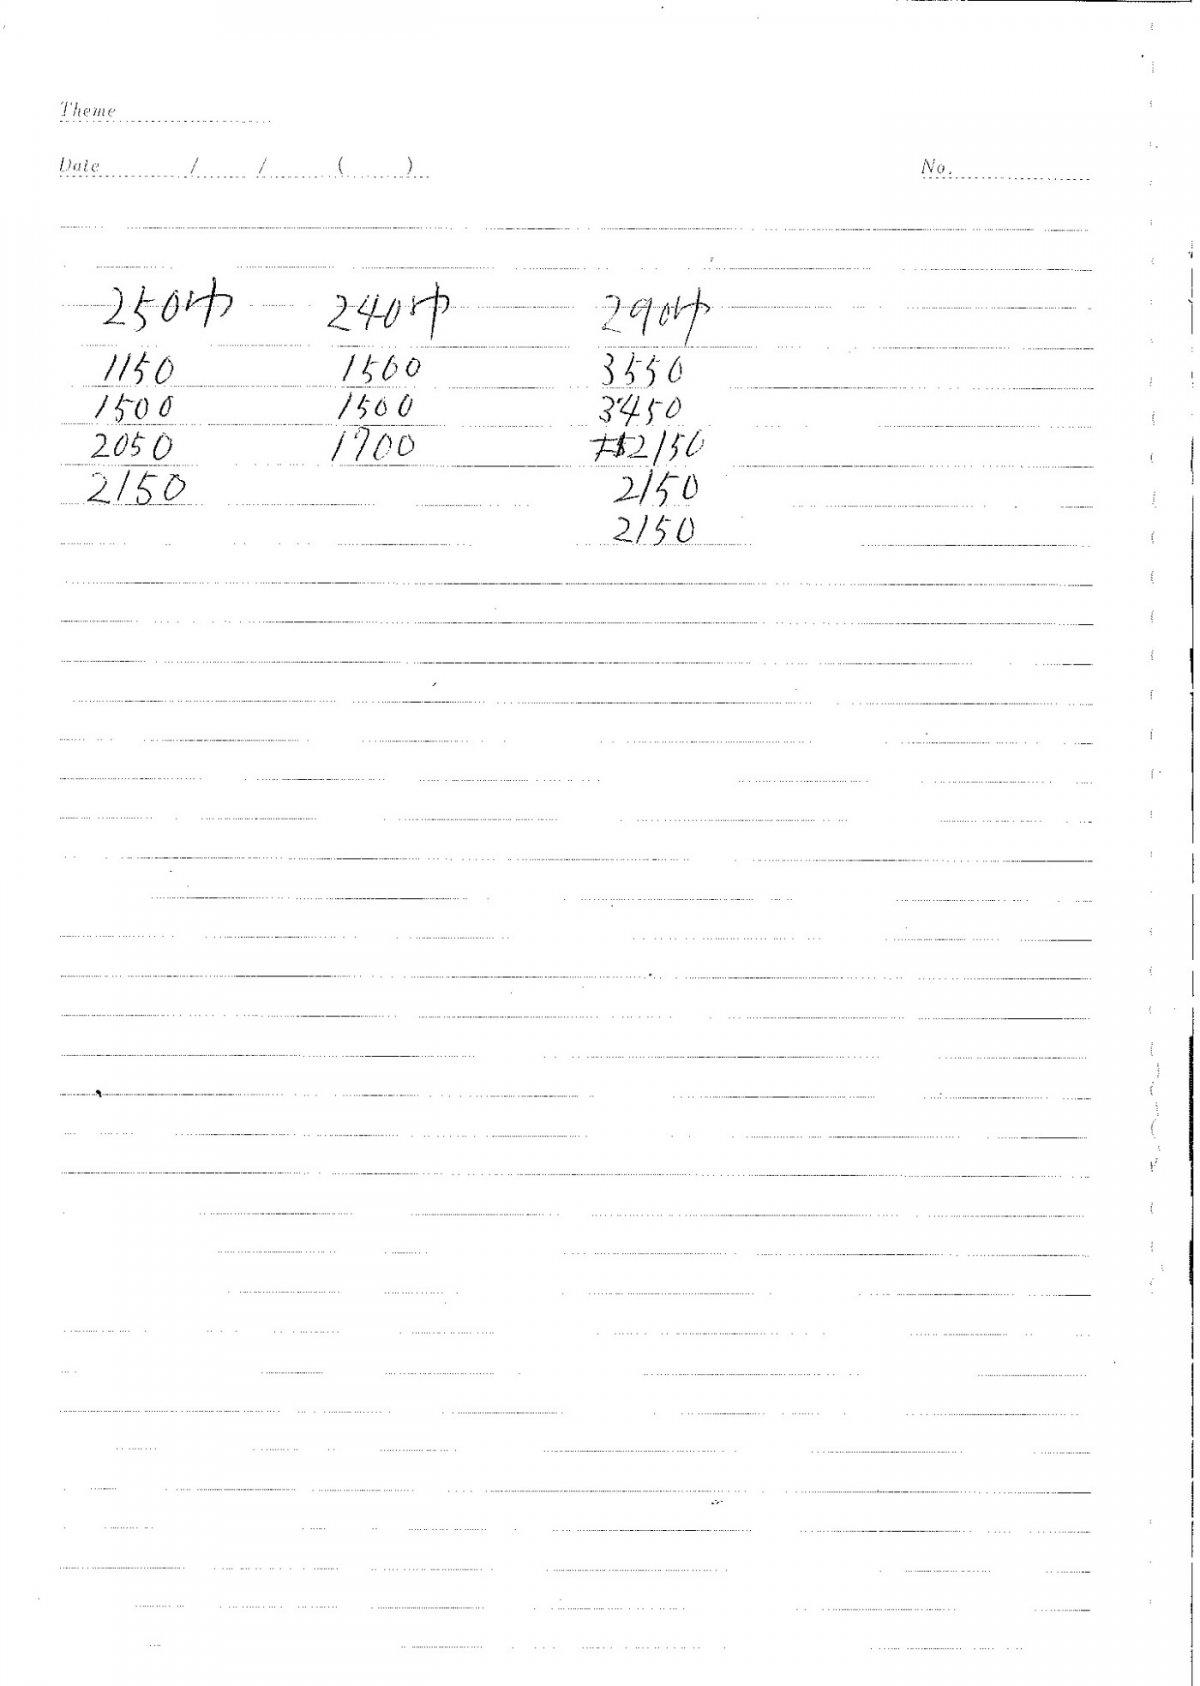 Theme
Date / / ( ) No.
250巾 240巾 290巾
1150 1500 3550
1500 1500 3450
2050 1700 2150
2150 2150
2150